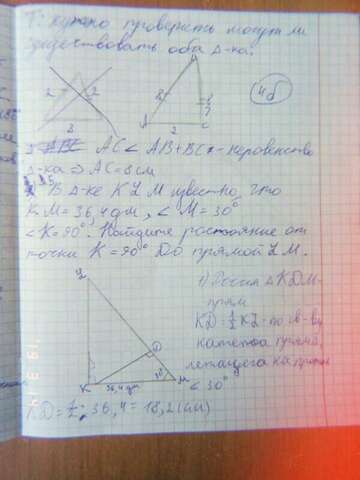 Т: нужно проверить могут ли
существовать оба Δ-ка.
2
2
3
8
?
A
C
2
4б
AC < AB + BC - неравенство
Δ-ка ⇒ AC = 8 см
В Δ-ке KLM известно, что
KM = 36,4 дм, ∠M = 30°
∠K = 90°. Найдите расстояние от
точки K = 90° До прямой LM.
L
D
K
36,4дм
30°
M
1) Рассм ΔKDM-
прям
KD = ½ KL - по св-ву
катета прямо,
лежащего на против
∠30°
KD = ½ · 36,4 = 18,2 (дм)